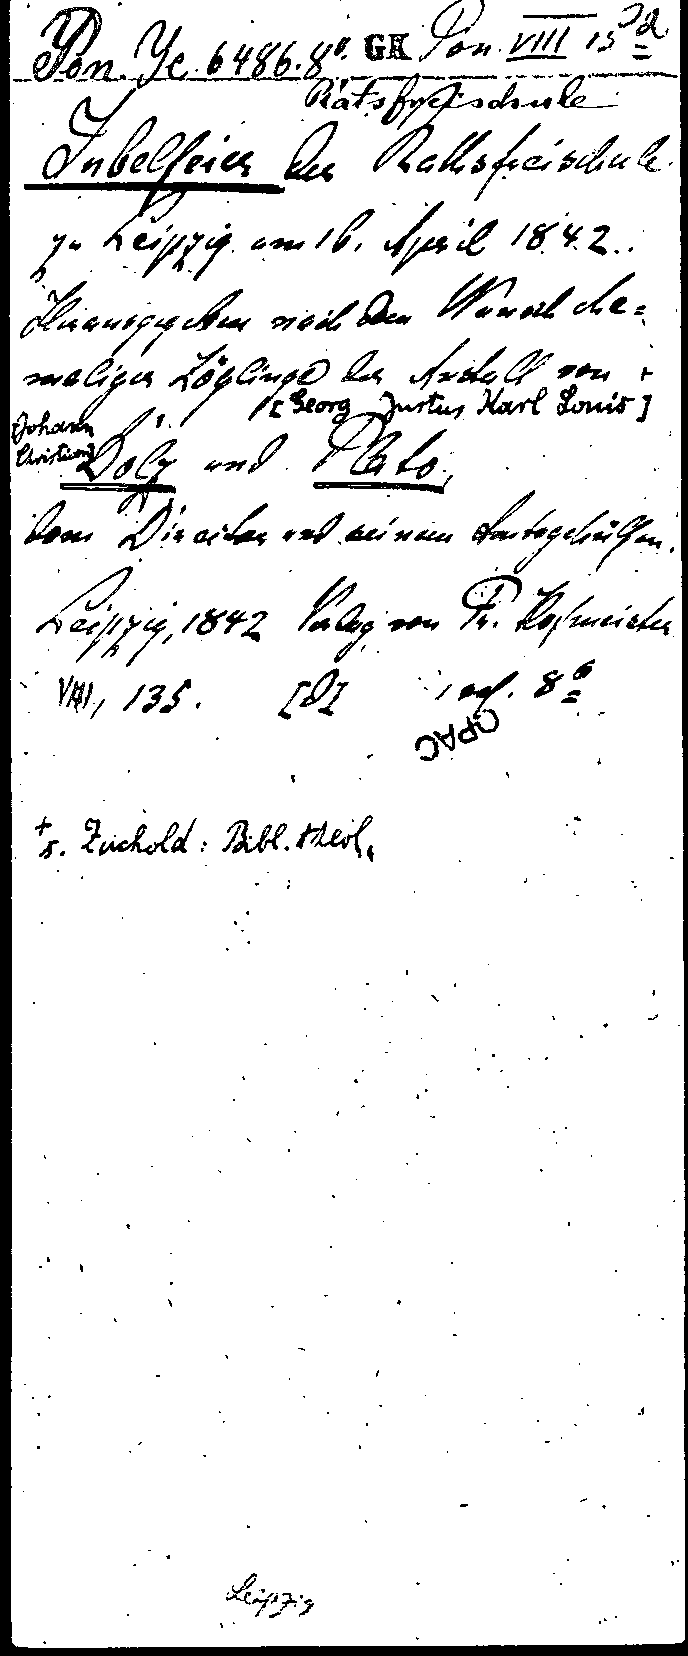 Pon. Yc. 6486. 8°. GK Pon. VIII 15 d
Ratsfreischule
Jubelfeier der Rathsfreischule
zu Leipzig am 16. April 1842.
Herausgegeben nach dem Wunsch ehe=
maliger Zöglinge der Anstalt von +
[Georg Justus Karl Louis]
Johann
Christian]
Dolz und Plato,
dem Director und seinem Amtsgehülfen.
Leipzig, 1842 Verlag von Fr. Hofmeister
VIII, 135. [d] 8°
OPAC
+ s. Zuchold: Bibl. theol.
Leipzig